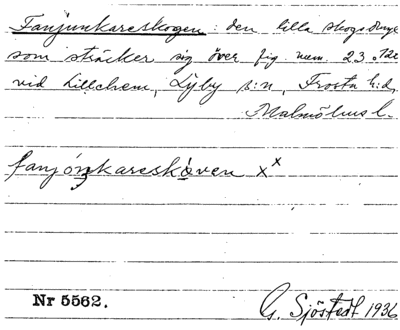 Fanjunkareskogen: den lilla skogsdunge
som sträcker sig över fig. num. 23 o. 122
vid Lillehem, Lyby s:n, Frosta h:d,
Malmöhus l.
fanjóŋkareskòven x x
Nr 5562.
G. Sjöstedt 1936